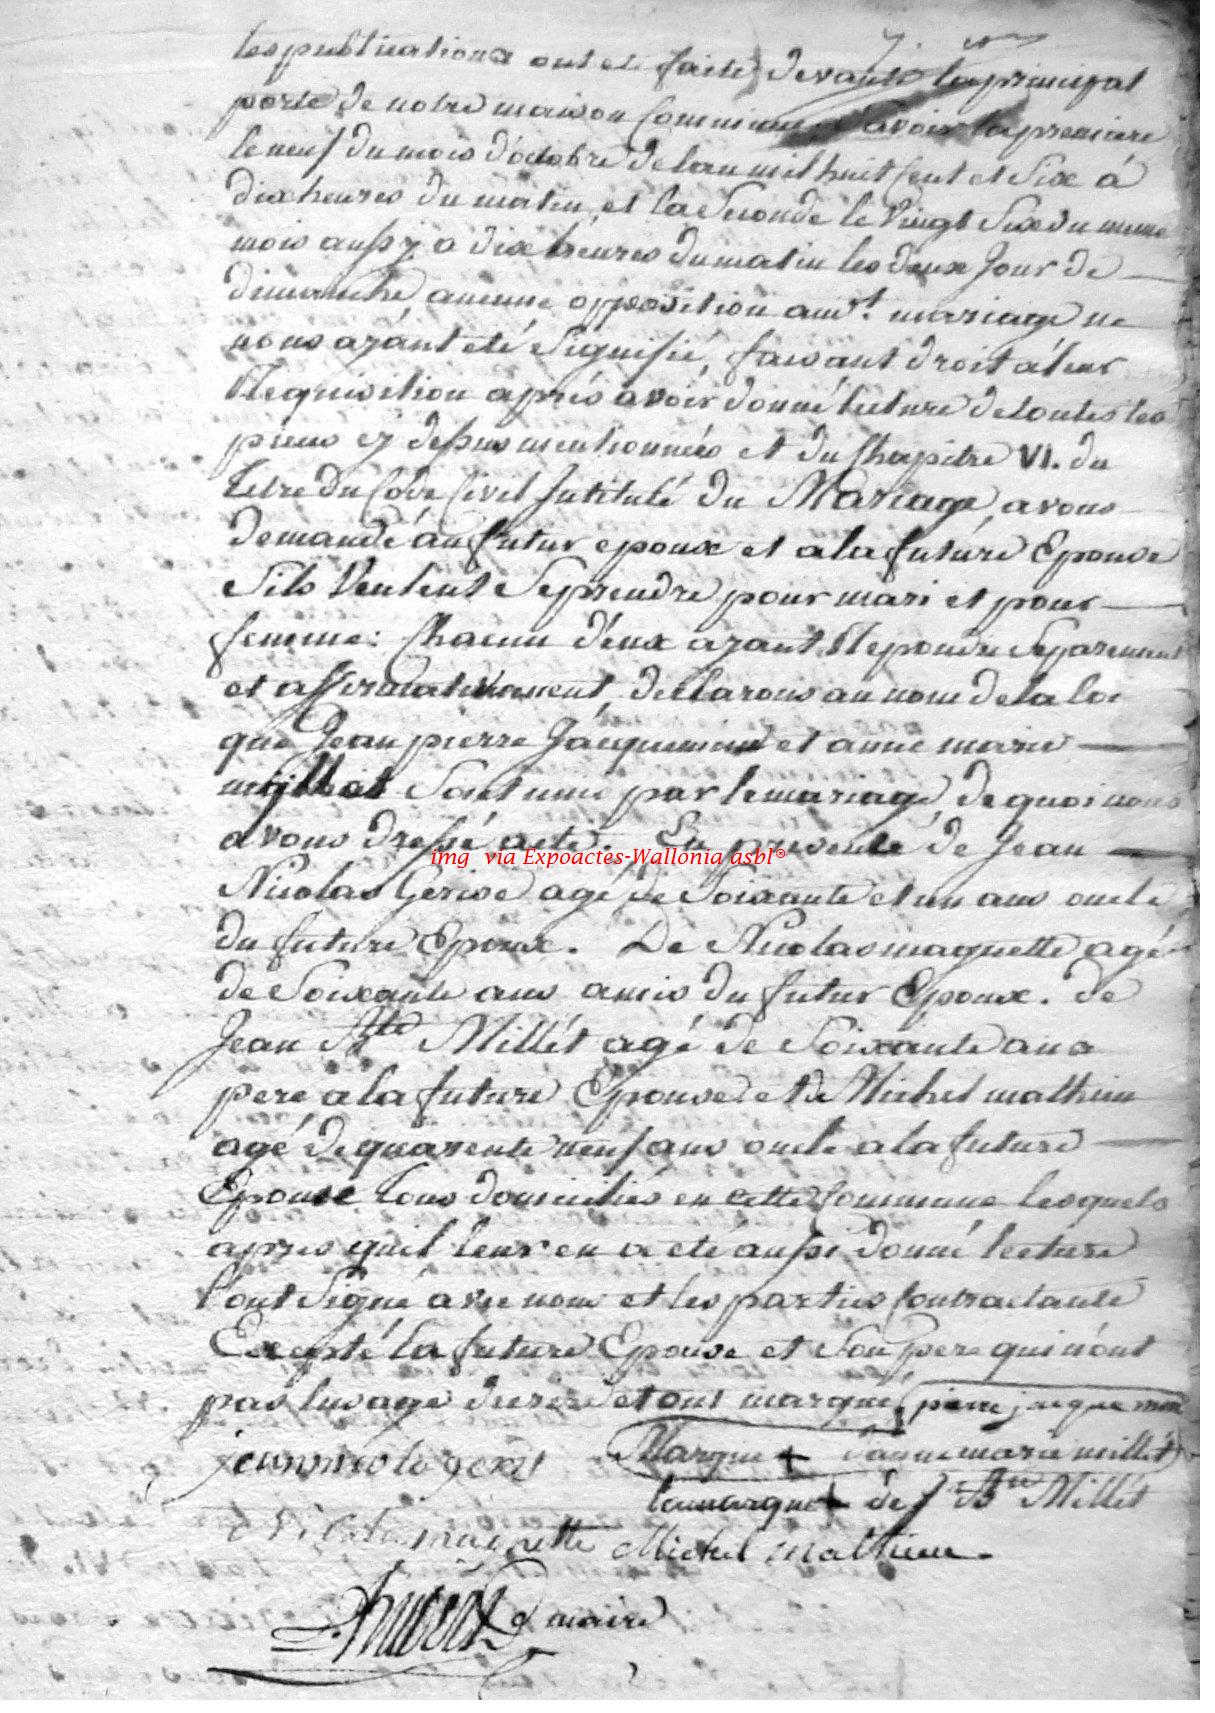 les publications ont eté faites devant la principal
porte de notre maison Commune. Savoir la premiere
le neuf du mois d'octobre de lan mil huit Cent et Six á
dix heures du matin, et la Seconde le Vingt Six du meme
mois aussy a dix heures du matin les deux Jour de
dimanche, aucune opposition audt. mariage ne
nous ayánt eté Signifié, faisant droit á leur
Requisition aprés avoir donné lecture de toutes les
pieces cy dessus mentionnées et du Chapitre VI. du
titre du Code Civil Intitulé du Mariage, avons
demandé áu futur epoux et a la future Epouse
Sils Veulent Se prendre pour mari et pour
femme: Chacun d'eux ayant Repondu Separement
et affirmativement, declarons au nom de la loi
que Jean pierre Jácquemin et anne marie
Sont unie par le mariage, de quoi nous
avons dressé acte. En presence de Jean
img via Expoactes-Wallonia asbl®
Nicolas Gerise agé de Soixante et un ans oncle
du future Epoux. De Nicolas maquette agé
de Soixante ans amis du futur Epoux. de
Jean Bte Millét agé de Soixante ans
pere a la future Epouse et de Michel mathieu
agé de quarente neuf ans oncle a la future
Epouse tous domiciliés en cette Commune lesquels
apres quil leur en a eté aussi donné lecture
l'ont Signé avec nous et les parties Contractante
Excepté la future Epouse et Son pere qui n'ont
pas lusage decrire et ont marqué, pierre jacquemin
jean nicolas Marque + d'anne marie millét
la marque + de J Bte Millét
maquette Michel mathieu.
maire